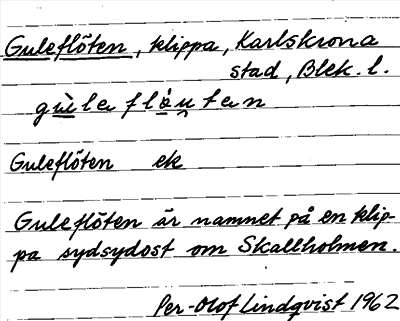 Guleflöten, klippa, Karlskrona
stad, Blek. l.
gù̲leflá̲u̯ten
Guleflöten ek
Guleflöten är namnet på en klip-
pa sydsydost om Skallholmen.
Per-Olof Lindqvist 1962